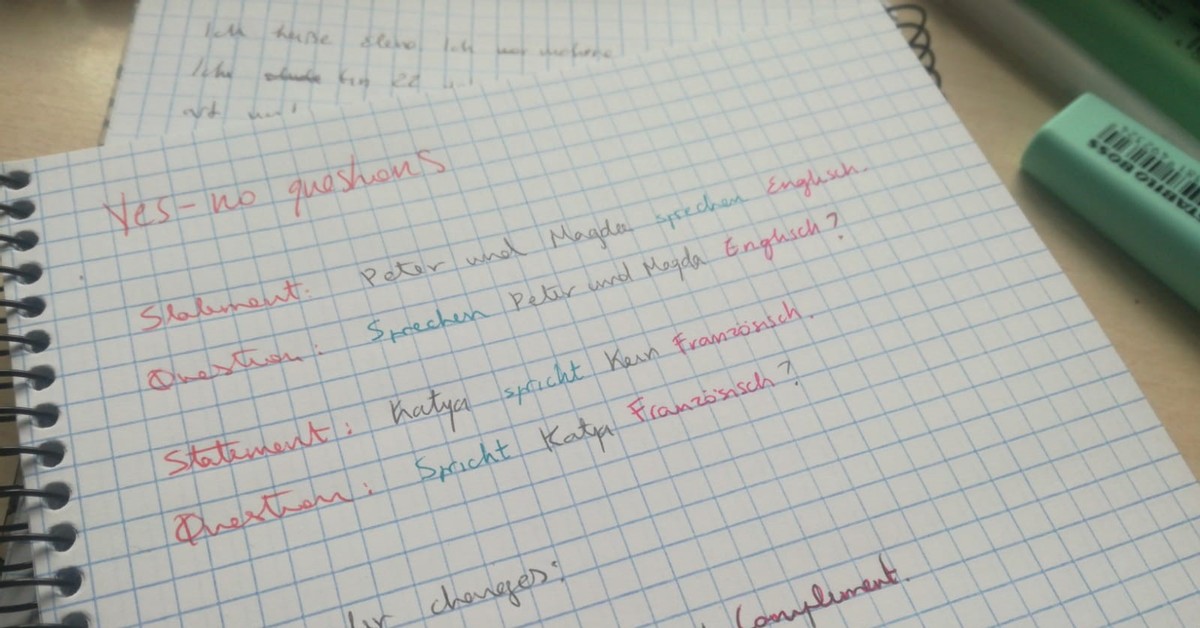 Ich heiße
Ich 22
Yes-no questions
Statement: Peter und Magda sprechen Englisch.
Question: Sprechen Peter und Magda Englisch?
Statement: Katya spricht kein Französisch.
Question: Spricht Katya Französisch?
changes:
Complement.
STABILO BOSS